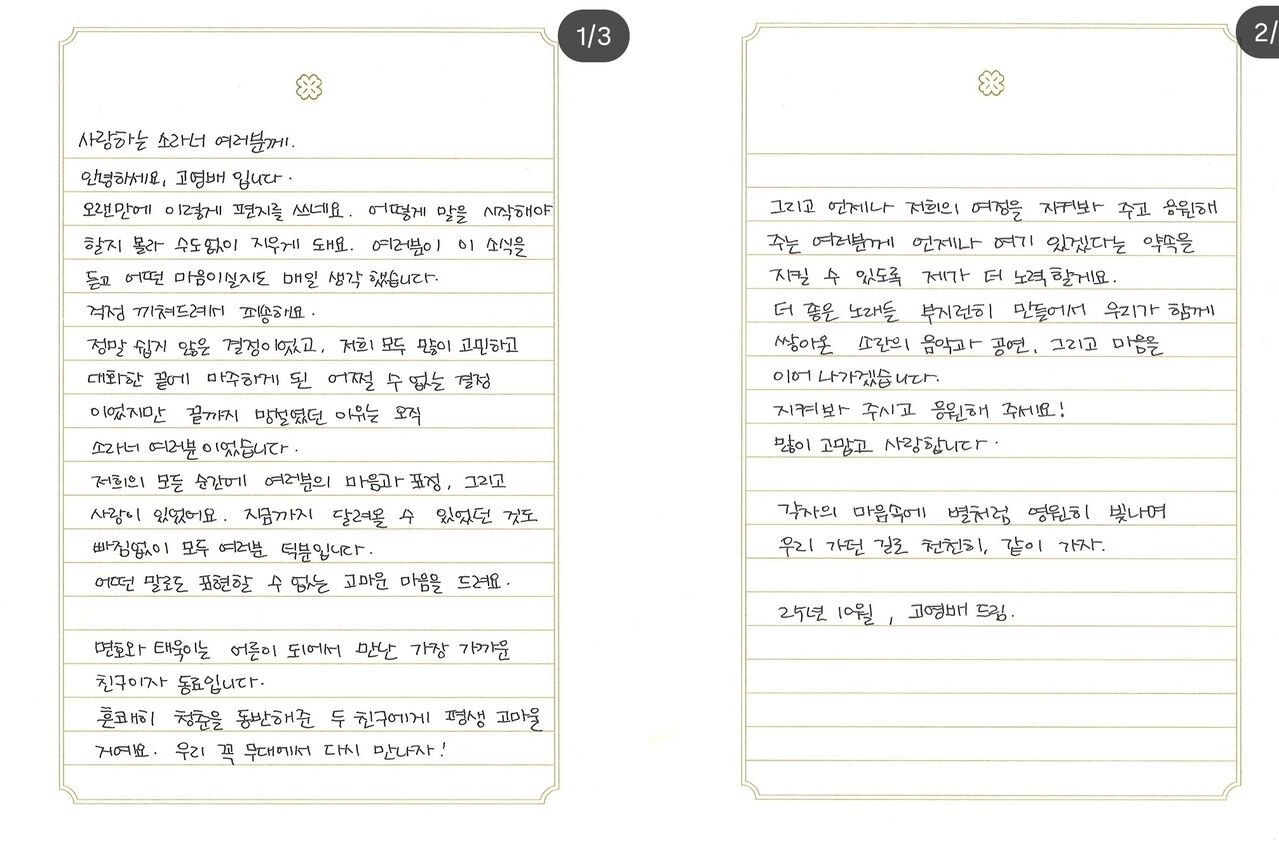 1/3
사랑하는 소라너 여러분께.
안녕하세요, 고영배 입니다.
오랜만에 이렇게 편지를 쓰네요. 어떻게 말을 시작해야
할지 몰라 수도없이 지우게 돼요. 여러분이 이 소식을
듣고 어떤 마음이실지도 매일 생각 했습니다.
걱정 끼쳐드려서 죄송해요.
정말 쉽지 않은 결정이었고, 저희 모두 많이 고민하고
대화한 끝에 마주하게 된 어쩔 수 없는 결정
이었지만 끝까지 망설였던 이유는 오직
소라너 여러분이었습니다.
저희의 모든 순간에 여러분의 마음과 표정, 그리고
사랑이 있었어요. 지금까지 달려올 수 있었던 것도
빠짐없이 모두 여러분 덕분입니다.
어떤 말로도 표현할 수 없는 고마운 마음을 드려요.
면호와 태욱이는 어른이 되어서 만난 가장 가까운
친구이자 동료입니다.
흔쾌히 청춘을 동반해준 두 친구에게 평생 고마울
거예요. 우리 꼭 무대에서 다시 만나자!
2/
그리고 언제나 저희의 여정을 지켜봐 주고 응원해
주는 여러분께 언제나 여기 있겠다는 약속을
지킬 수 있도록 제가 더 노력할게요.
더 좋은 노래들 부지런히 만들어서 우리가 함께
쌓아온 소란의 음악과 공연, 그리고 마음을
이어 나가겠습니다.
지켜봐 주시고 응원해 주세요!
많이 고맙고 사랑합니다.
각자의 마음속에 별처럼 영원히 빛나며
우리 가던 길로 천천히, 같이 가자.
25년 10월, 고영배 드림.